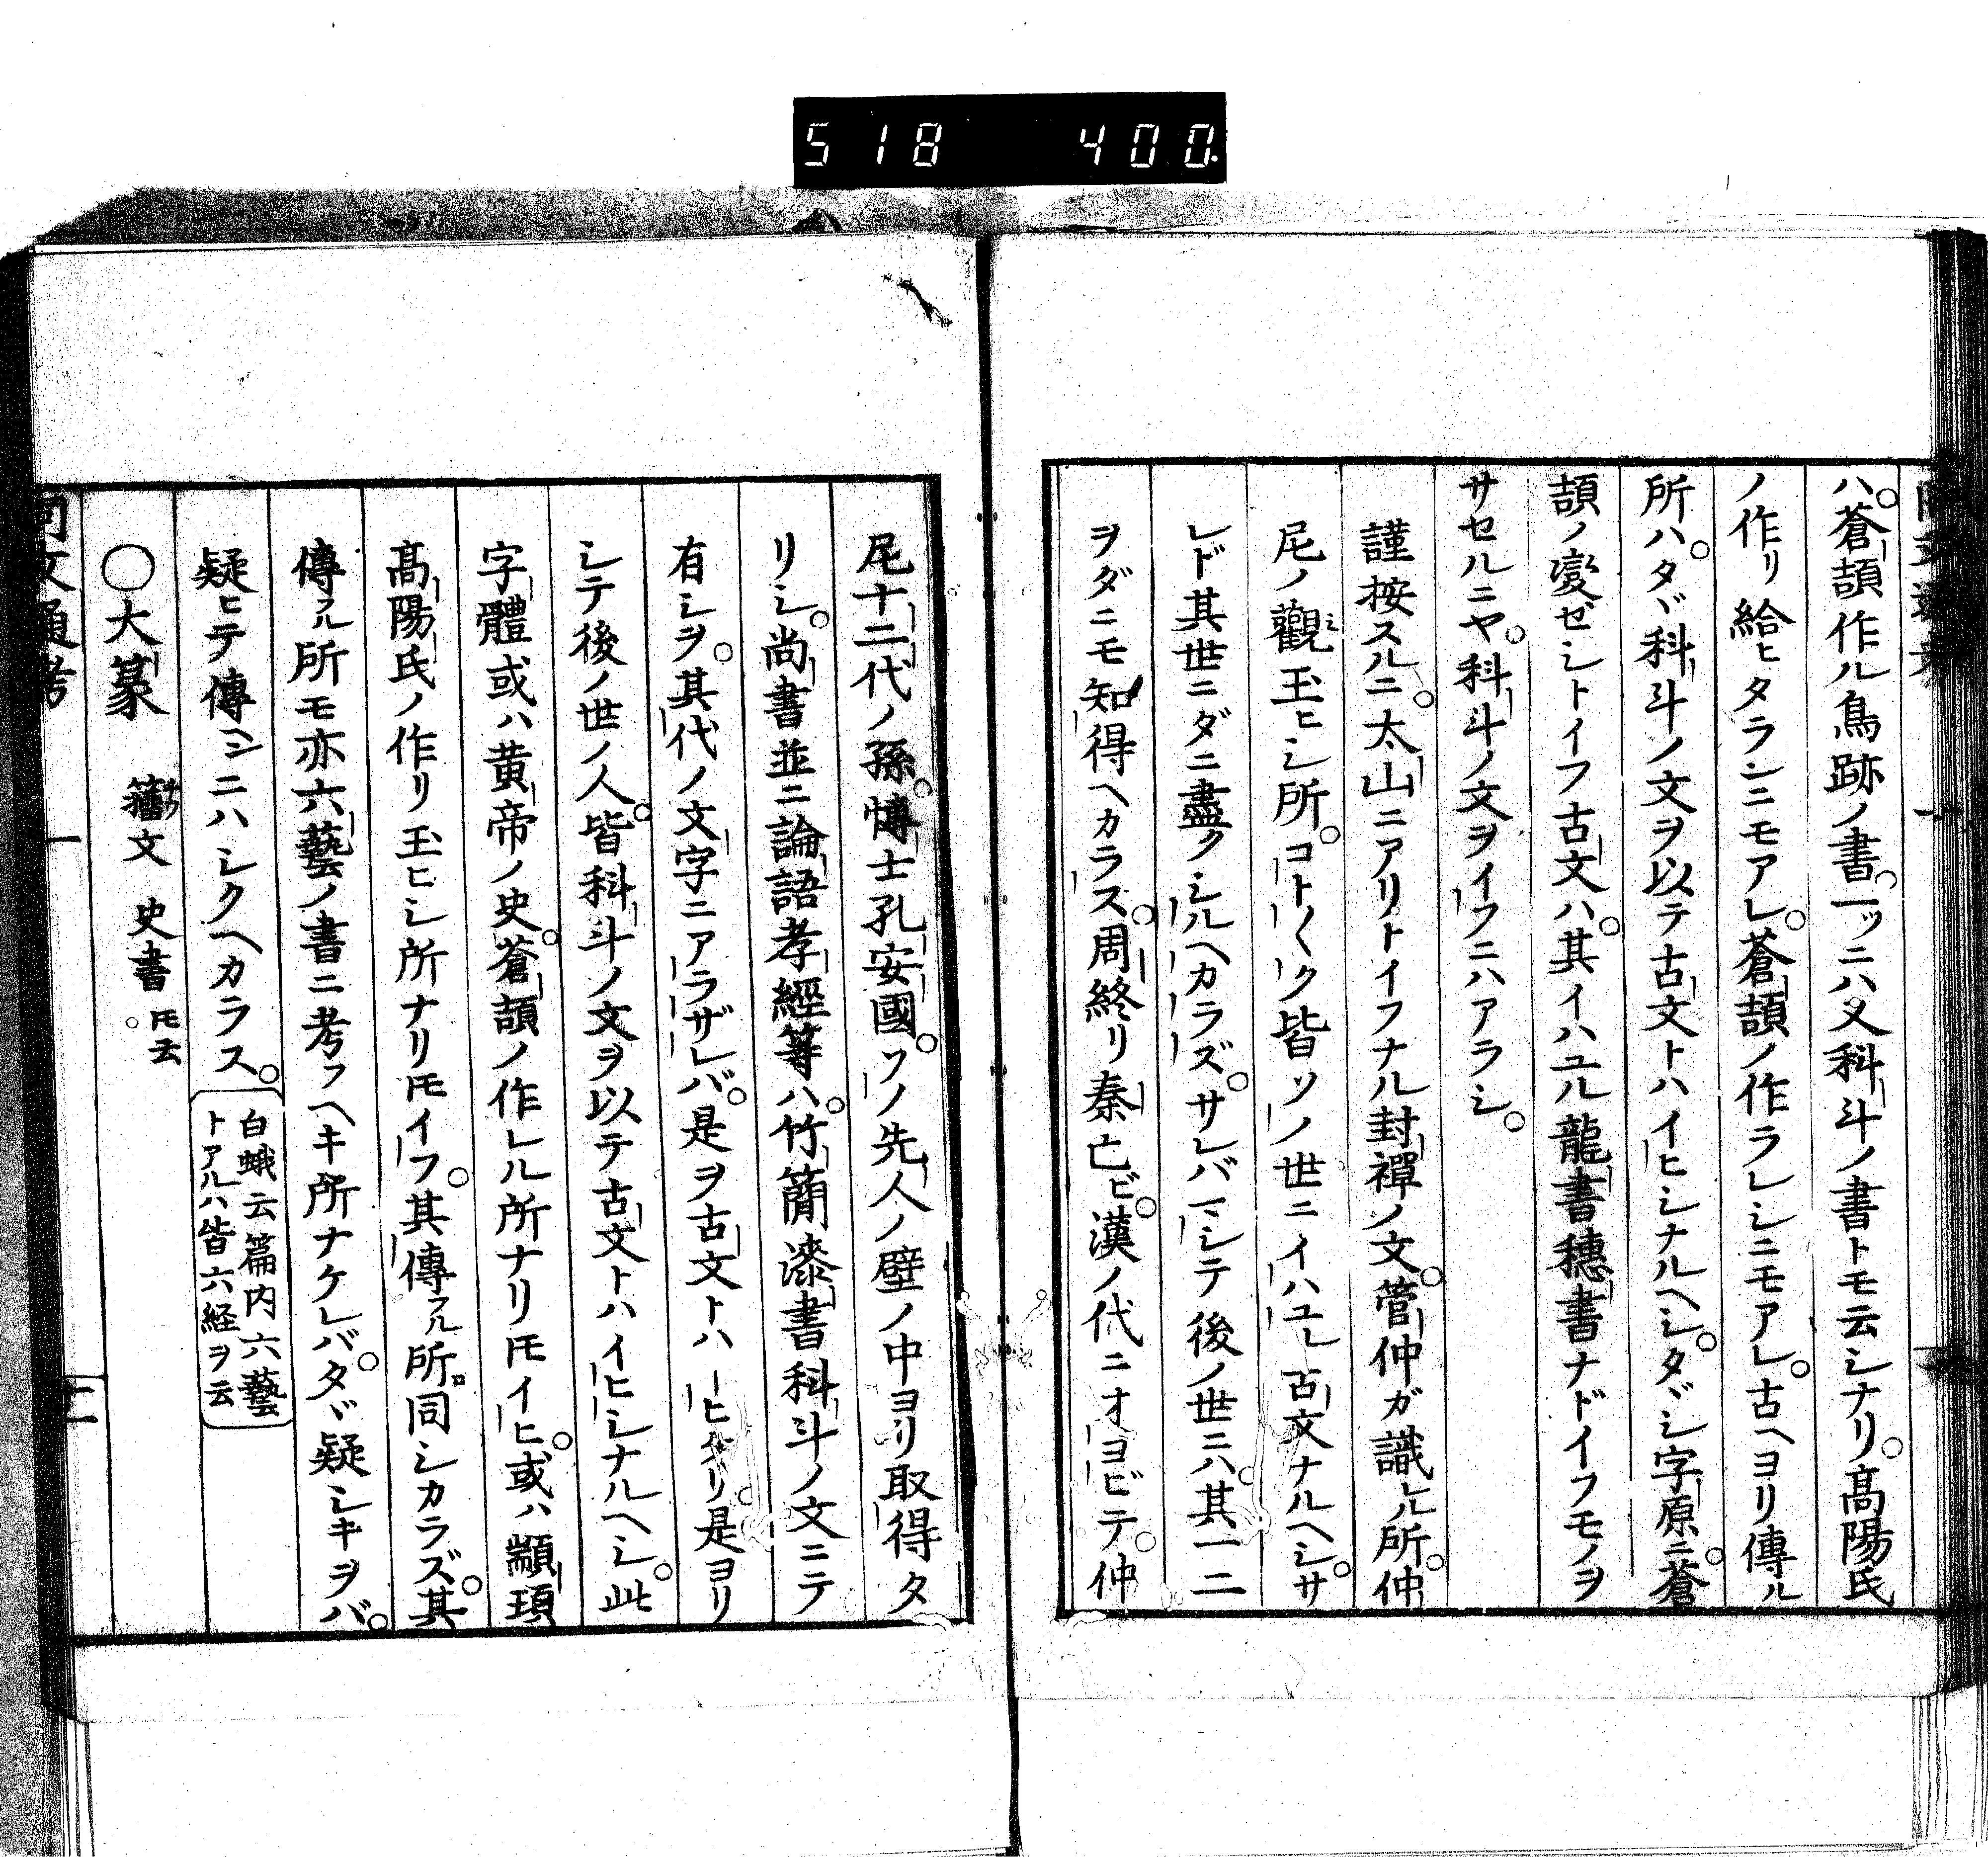 518 400
ハ。蒼頡作ル鳥跡ノ書。一ツニハ又科斗ノ書トモ云シナリ。髙陽氏
ノ作リ給ヒタランニモアレ。蒼頡ノ作ラレシニモアレ。古ヘヨリ傳ル
所ハ。タヾ科斗ノ文ヲ以テ古文トハイヒシナルヘシ。タヾシ字原ニ。蒼
頡ノ変ゼシトイフ古文ハ。其イハユル龍書穗書ナドイフモノヲ
サセルニヤ。科斗ノ文ヲイフニハアラシ。
謹按スルニ。太山ニアリトイフナル封禪ノ文。管仲ガ識レル所。仲
尼ノ觀玉ヒシ所。コト〱ク皆ソノ世ニイハユレ古文ナルヘシ。サ
レド其世ニダニ盡クシルヘカラズ。サレバマシテ後ノ世ニハ。其一二
ヲダニモ知得ヘカラス。周終リ秦亡ビ。漢ノ代ニオヨビテ。仲
尼十二代ノ孫。愽士孔安國。ソノ先人ノ壁ノ中ヨリ取得タ
リシ。尚書並ニ論語孝經等ハ。竹簡漆書科斗ノ文ニテ
有シヲ。其代ノ文字ニアラザレバ。是ヲ古文トハイヒタリ。是ヨリ
シテ後ノ世ノ人。皆科斗ノ文ヲ以テ古文トハイヒシナルヘシ。此
字體或ハ黄帝ノ史。蒼頡ノ作レル所ナリ𪜈イヒ。或ハ顓頊
髙陽氏ノ作リ玉ヒシ所ナリ𪜈イフ。其傳フル所。同シカラズ。其
傳フル所モ亦六藝ノ書ニ考フヘキ所ナケレバ。タヾ疑シキヲバ。
疑ヒテ傳ヘシニハシクヘカラス。
白蛾云篇内六藝
トアルハ皆六経ヲ云
○大篆 籀文 史書 𪜈云。
同文通考 一 二